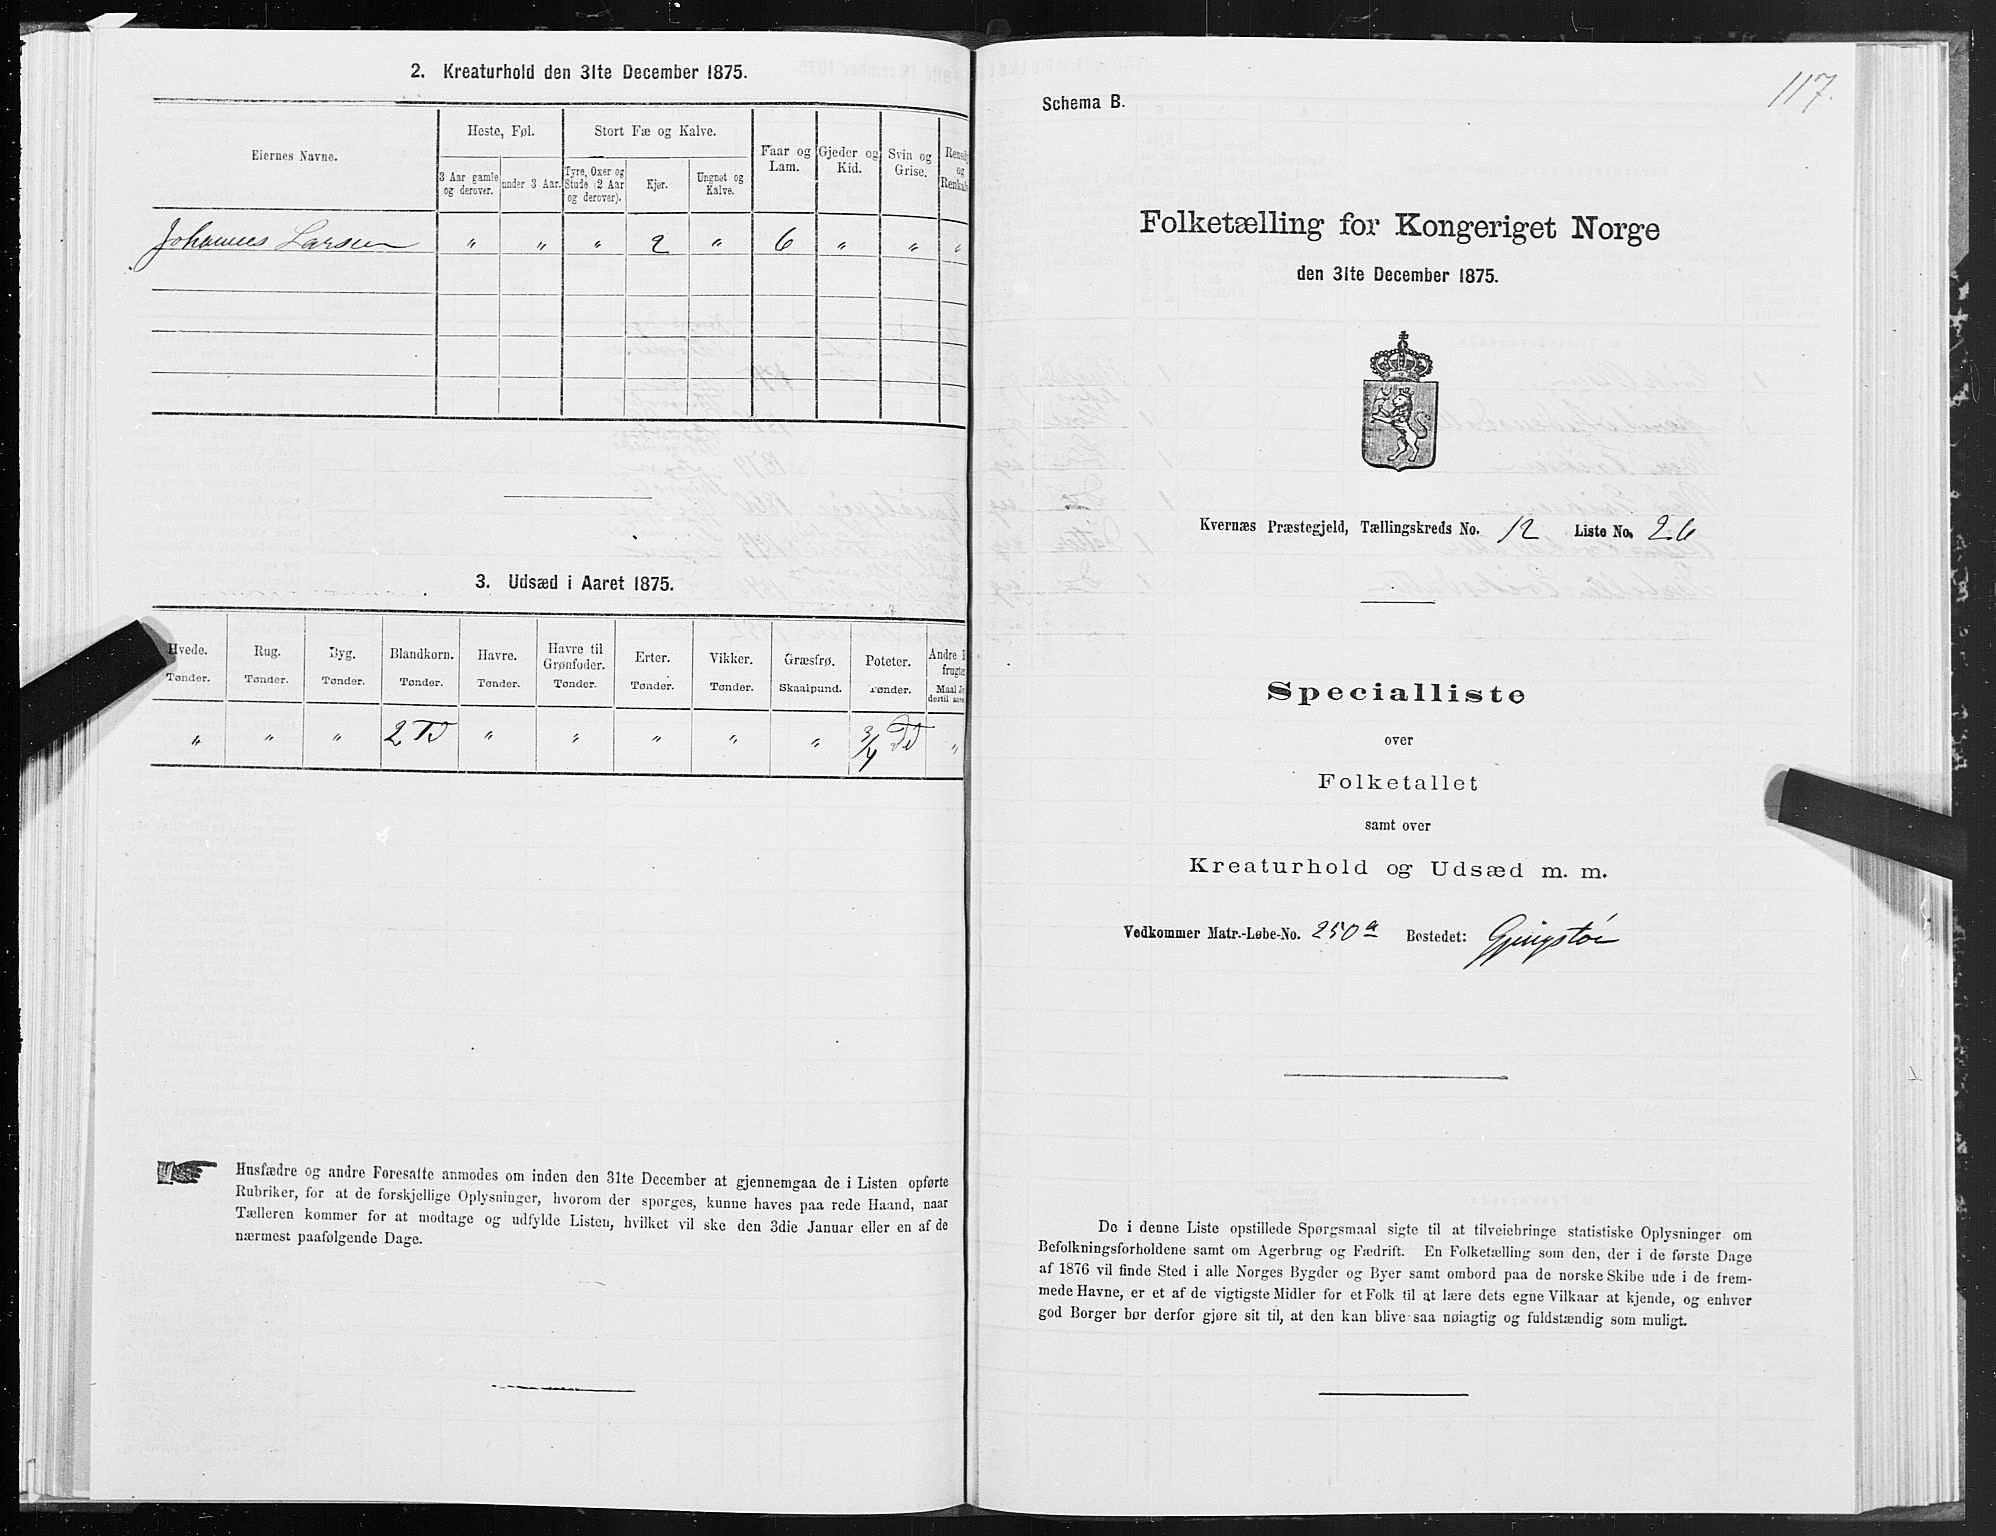 2. Kreaturhold den 31te December 1875.
Eiernes Navne.
Heste, Føl.
Stort Fæ og Kalve.
Faar og Lam.
Gjeder og Kid.
Svin og Grise.
Rensdy
og
Renkalv
3 Aar gamle og derover.
under 3 Aar.
Tyre, Oxer og Stude (2 Aar og derover).
Kjør.
Ungnøt og Kalve.
Johannes Larsen " " " 2 " 6 " " "
3. Udsæd i Aaret 1875.
Hvede. Rug. Byg. Blandkorn. Havre. Havre til Grønfoder. Erter. Vikker. Græsfrø. Poteter. Andre
frugte
Tønder. Tønder. Tønder. Tønder. Tønder. Tønder. Tønder. Tønder. Skaalpund. Tønder. Maal Jo
dertil anve
" " " 2 Td " " " " " 3/4 Td "
Husfædre og andre Foresatte anmodes om inden den 31te December at gjennemgaa de i Listen opførte
Rubriker, for at de forskjellige Oplysninger, hvorom der spørges, kunne haves paa rede Haand, naar
Tælleren kommer for at modtage og udfylde Listen, hvilket vil ske den 3die Januar eller en af de
nærmest paafølgende Dage.
117.
Schema B.
Folketælling for Kongeriget Norge
den 31te December 1875.
Kvernæs Præstegjeld, Tællingskreds No. 12 Liste No. 26
Specialliste
over
Folketallet
samt over
Kreaturhold og Udsæd m. m.
Vedkommer Matr.-Løbe-No. 250a Bostedet: Gjengstøe
De i denne Liste opstillede Spørgsmaal sigte til at tilveiebringe statistiske Oplysninger om
Befolkningsforholdene samt om Agerbrug og Fædrift. En Folketælling som den, der i de første Dage
af 1876 vil finde Sted i alle Norges Bygder og Byer samt ombord paa de norske Skibe ude i de frem-
mede Havne, er et af de vigtigste Midler for et Folk til at lære dets egne Vilkaar at kjende, og enhver
god Borger bør derfor gjøre sit til, at den kan blive saa nøiagtig og fuldstændig som muligt.